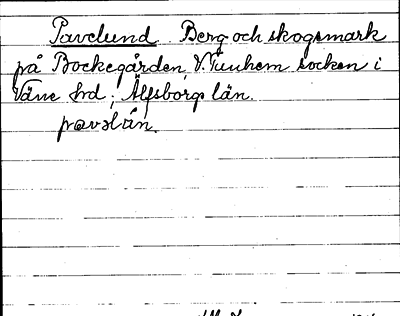 Pavelund Berg och skogsmark
på Bockegården, V. Tunhem socken i
Väne hrd; Älfsborgs län.